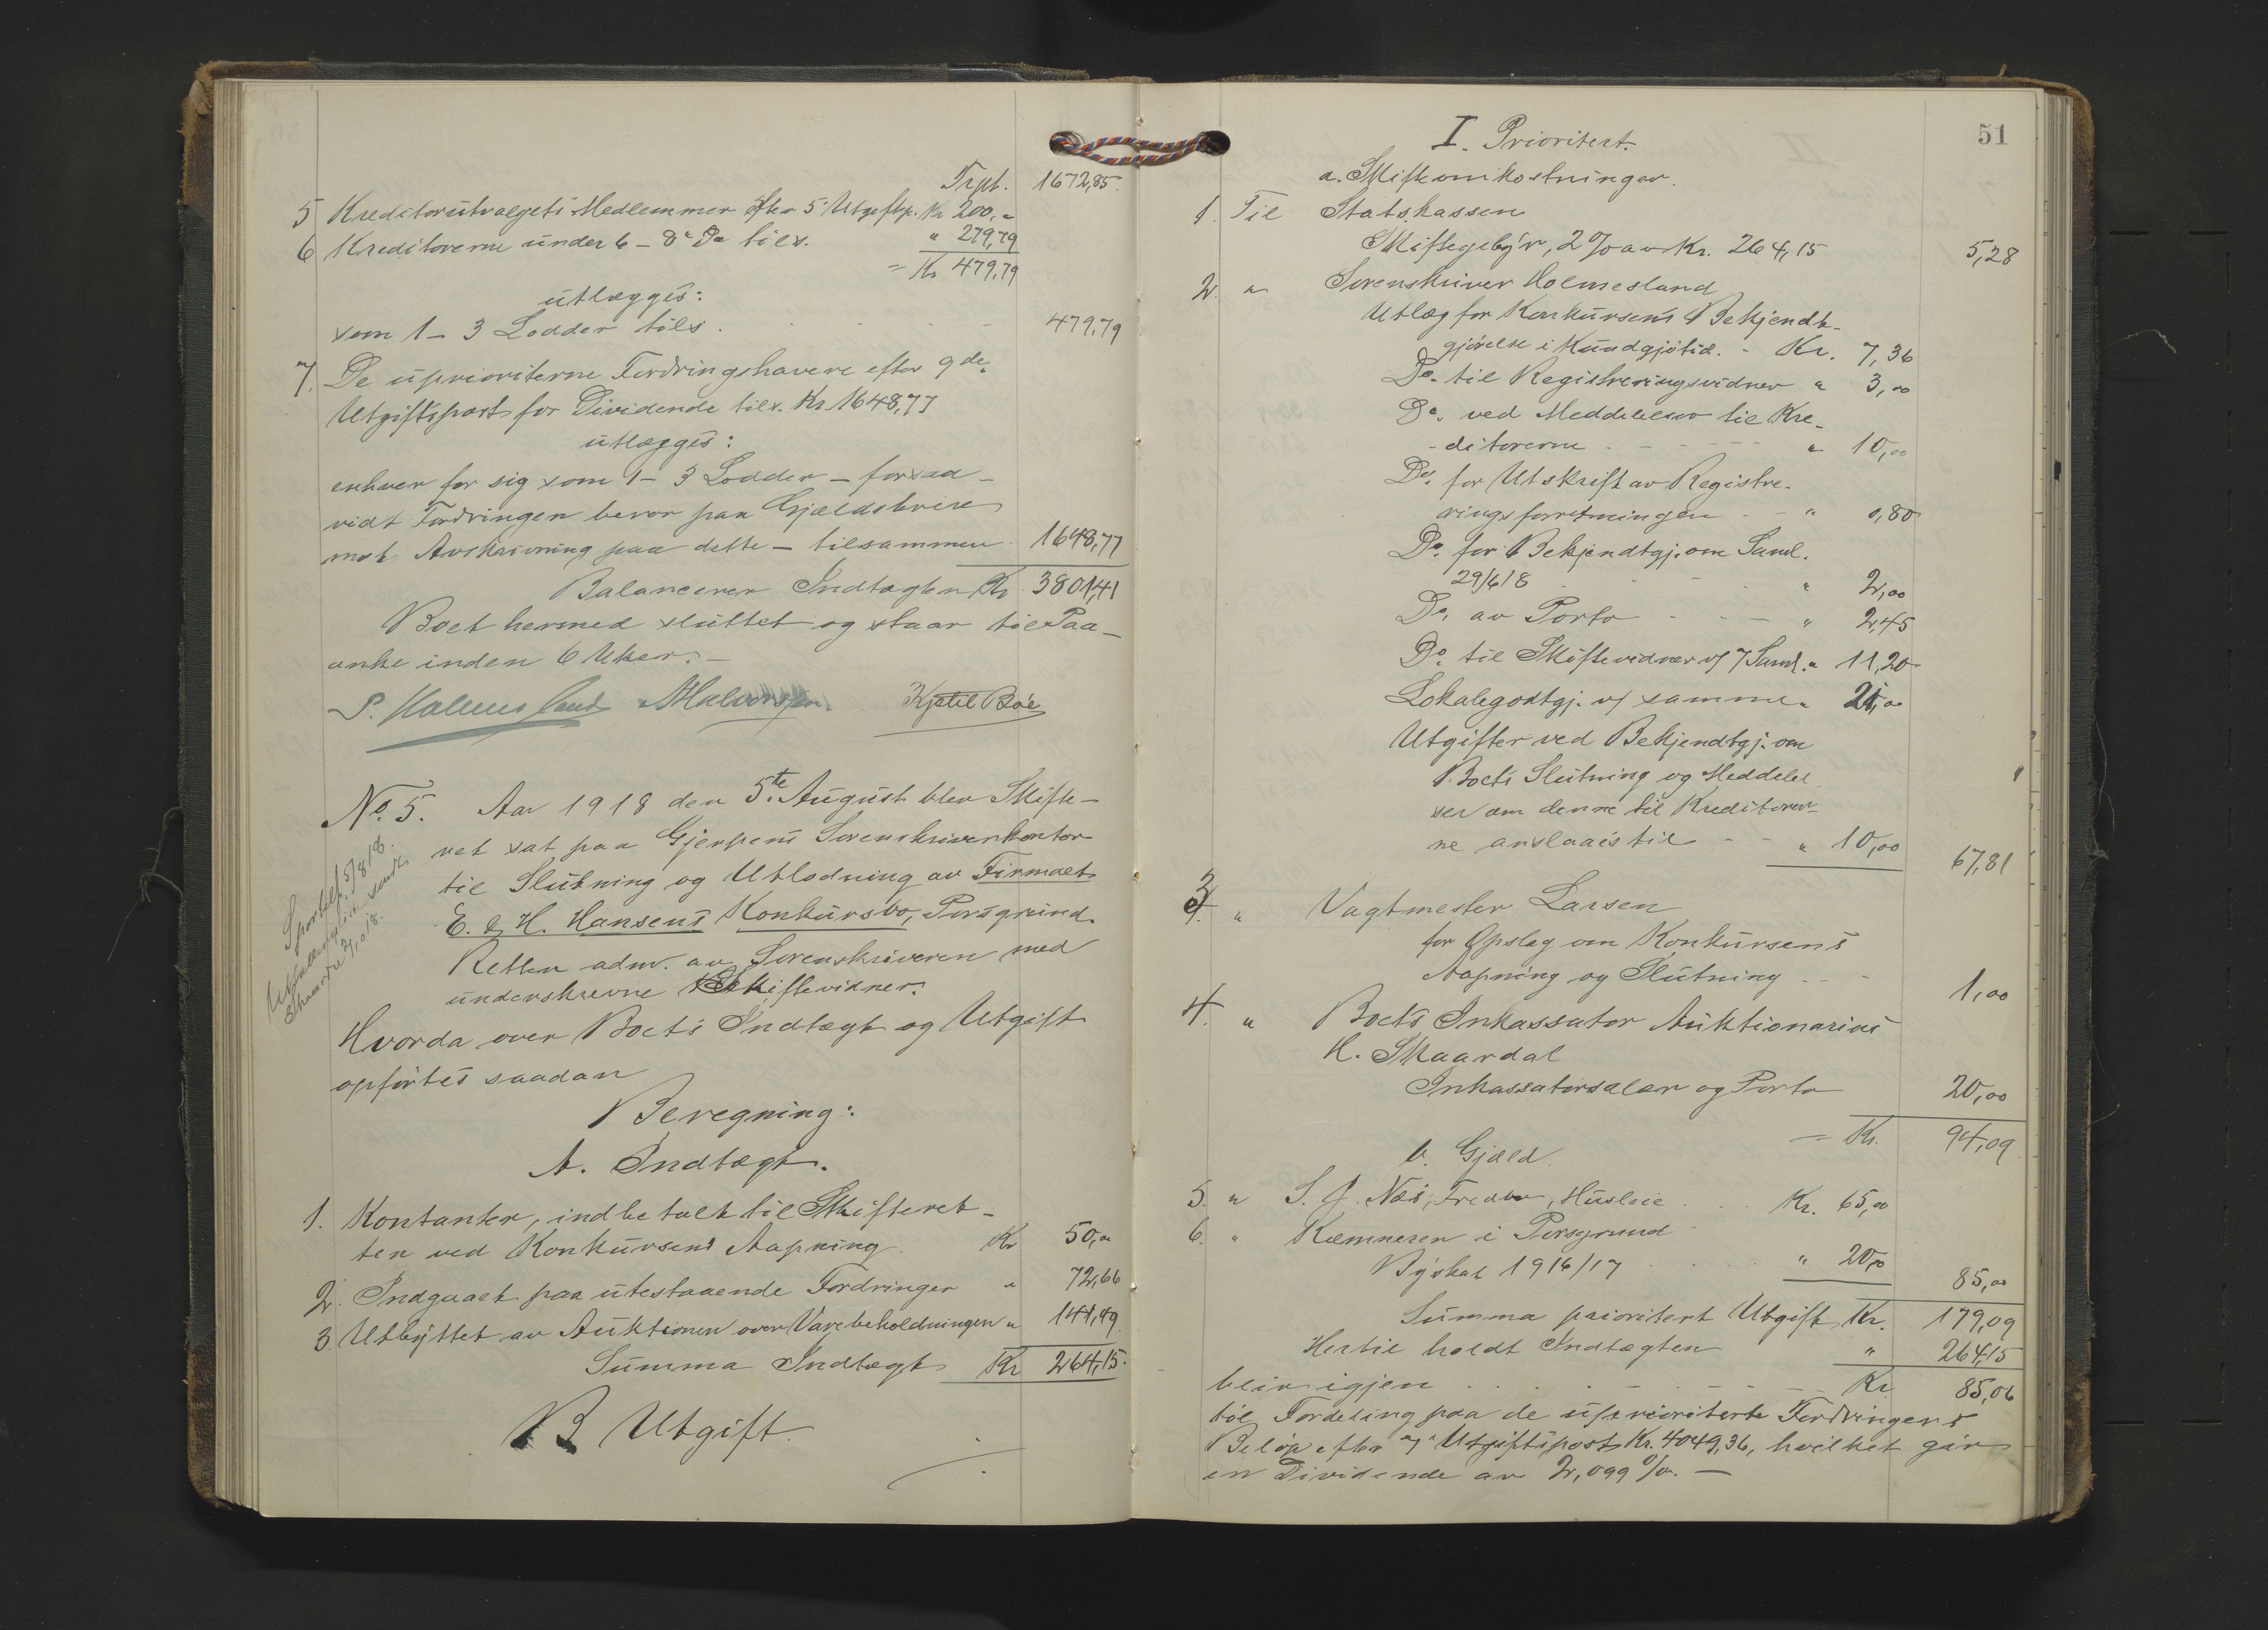 Trpt. 1672,85.
5 Kreditorutvalgets Medlemmer efter 5 Utgiftsp. Kr 200,-
6 Kreditorerne under 6 - 8de Do tils. " 279,79
= Kr 479,79
utlægges:
som 1 - 3 Lodder tils. 479,79
7. De uprioriterne Fordringshavere efter 9de
Utgiftspost for Dividende tils. Kr 1648,77
utlægges:
enhver for sig som 1 - 3 Lodder - forsaa-
vidt Fordringen beror paa Gjældsbrive
mot Avskrivning paa dette - tilsammen 1648,77
Balancerer Indtægten Kr 3801,41
Boet hermed sluttet og staar til Paa-
anke inden 6 Uker. -
P. Holmesland AHalvorsen. Kjetil Bøe
No. 5. Aar 1918 den 5te August blev Skifte-
ret sat paa Gjerpens Sorenskriverkontor
til Slutning og Utlodning av Firmaet
E. & H. Hansens Konkursbo, Porsgrund.
Retten adm. av Sorenskriveren med
underskrevne Skiftevidner.
Sportel 5/8 18.
Hvorda over Boets Indtægt og Utgift
opførtes saadan
Beregning:
A. Indtægt.
1. Kontanter, indbetalt til Skifteret-
ten ved Konkursens Aapning. Kr 50,00
2. Indgaaet paa utestaaende Fordringer " 72,66
3 Utbyttet av Auktionen over Varebeholdningen " 141,49
Summa Indtægt Kr 264,15.
B Utgift.
51
I. Prioritert.
a. Skifteomkostninger.
1. Til Statskassen
Skiftegebyr, 2 % av Kr. 264,15 5,28
2. " Sorenskriver Holmesland
Utlæg for Konkursens Bekjendt-
gjørelse i Kundgjøtid. - Kr. 7,36
Do. til Registreringsvidner " 3,00
Do. ved Meddelelser til Kre-
-ditorerne " 10,00
Do. for Utskrift av Registre-
ringsforretningen - " 0,80
Do. for Bekjendtgj. om Saml.
29/6 18 " 2,00
Do. av Porto " 2,45
Do. til Skiftevidner v/ 7 Saml. " 11,20
Lokalegodtgj. v/ samme " 21,00
Utgifter ved Bekjendtgj. om
Boets Slutning og Meddelel
ser om denne til Kreditorer-
ne anslaaes til " 10,00 67,81
3. " Vagtmester Larsen
for Opslag om Konkursens
Aapning og Slutning 1,00
4. " Boets Inkassator Auktionarius
H. Skaardal
Inkassatorsalær og Porto 20,00
= Kr. 94,09
b. Gjæld
5. " S. J. Næs, Husleie Kr. 65,00
6. " Kæmneren i Porsgrund
Byskat 1916/17 " 20,00 85,00
Summa prioritert Utgift Kr. 179,09
Hertil holdt Indtægten " 264,15
blir igjen Kr 85,06
til Fordeling paa de uprioriterte Fordringers
Beløp efter 7 Utgiftspost Kr. 4049,36, hvilket gir
en Dividende av 2,099 %. -